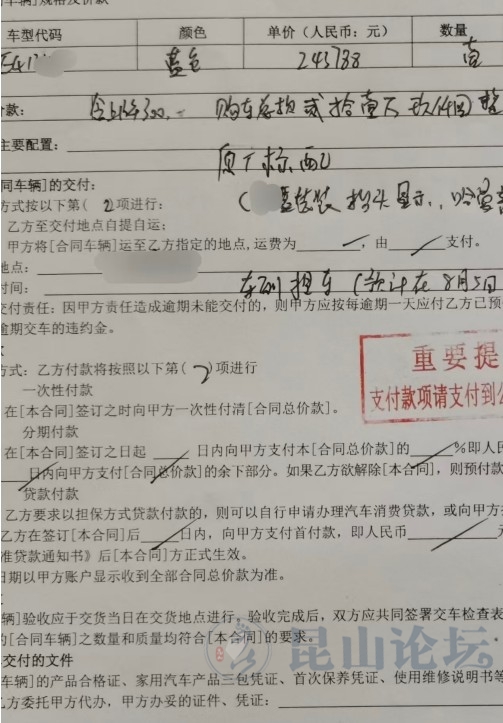 车辆]规格及价款
车型代码 颜色 单价（人民币：元） 数量
蓝色 243788 壹
价款：
主要配置： 原厂标配
同车辆]的交付：
方式按以下第( 2项进行：
乙方至交付地点自提自运；
甲方将[合同车辆]运至乙方指定的地点,运费为 ,由 支付。
地点：
时间： 车到提车（预计在8月5日
交付责任：因甲方责任造成逾期未能交付的，则甲方应按每逾期一天应付乙方已预
逾期交车的违约金。
方式：乙方付款将按照以下第( 2 )项进行
一次性付款
在[本合同]签订之时向甲方一次性付清[合同总价款]。
分期付款
在[本合同]签订之日起 日内向甲方支付本[合同总价款]的 %即人民
日内向甲方支付[合同总价款]的余下部分。如果乙方欲解除[本合同]，则预付款
贷款付款
乙方要求以担保方式贷款付款的，则可以自行申请办理汽车消费贷款，或向甲方
乙方在签订[本合同]后 日内，向甲方支付首付款，即人民币
准贷款通知书》后[本合同]方正式生效。
日期以甲方账户显示收到全部合同总价款为准。
重要提
支付款项请支付到公
辆]验收应于交货当日在交货地点进行，验收完成后，双方应共同签署交车检查表
的[合同车辆]之数量和质量均符合[本合同]的要求。
交付的文件
车辆]的产品合格证、家用汽车产品三包凭证、首次保养凭证、使用维修说明书等
乙方委托甲方代办，甲方办妥的证件、凭证：
昆山论坛